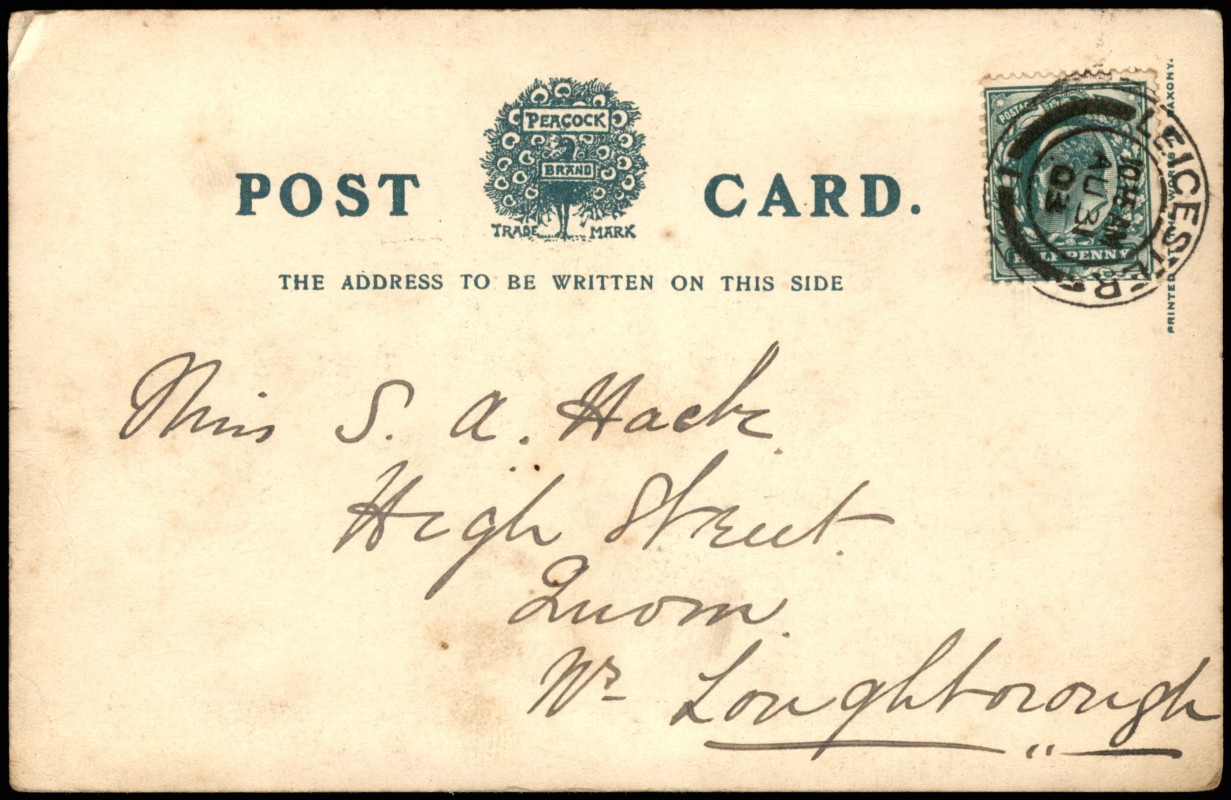 PEACOCK
BRAND
TRADE MARK
POST CARD.
THE ADDRESS TO BE WRITTEN ON THIS SIDE
POSTAGE
HALFPENNY
LEICESTER
10.15 AM
AU 31
03
1
PRINTED AT THE WORKS SAXONY.
Miss S. A. Hack
High Street.
Quorn.
Nr Loughborough